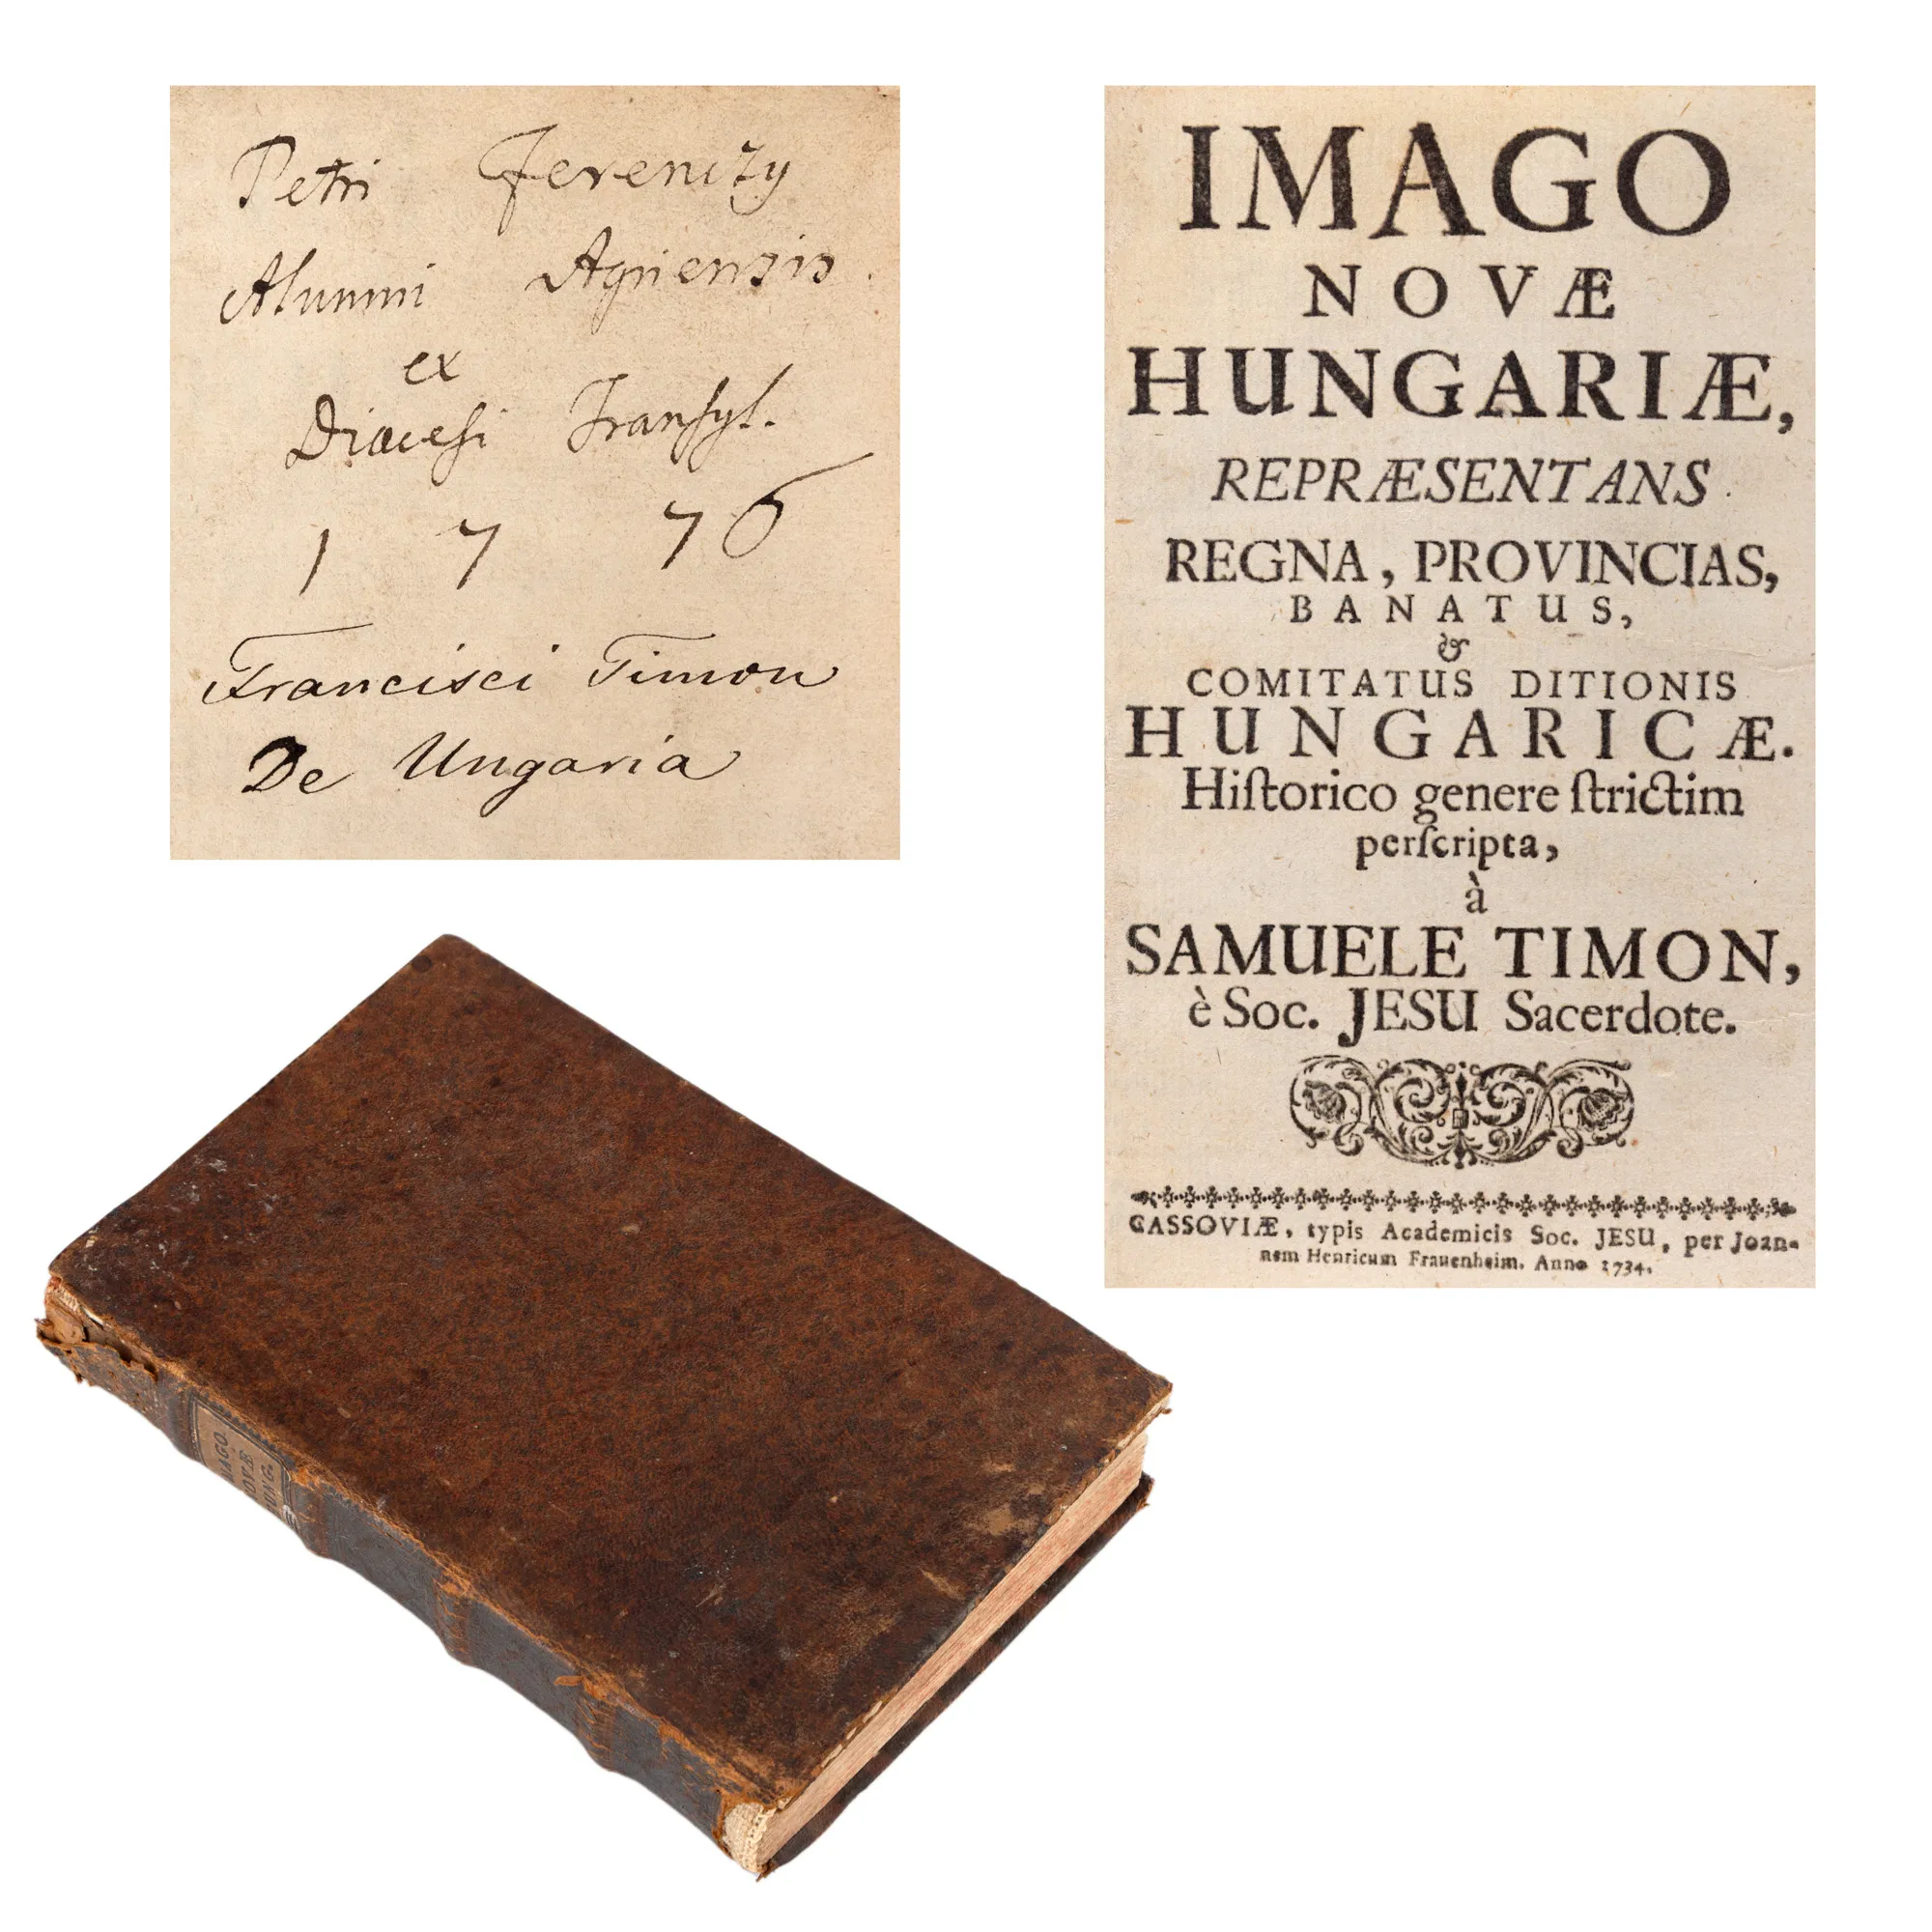 Petri Ferenczy
Alumni Agriensis
ex
Diœcesi Transyl.
1776
Francisci Timon
De Ungaria
IMAGO
NOVÆ
HUNGARIÆ,
REPRÆSENTANS
REGNA, PROVINCIAS,
BANATUS,
&
COMITATUS DITIONIS
HUNGARICÆ.
Hiſtorico genere ſtrictim
perſcripta,
à
SAMUELE TIMON,
è Soc. JESU Sacerdote.
CASSOVIÆ, typis Academicis Soc. JESU, per Joan-
nem Henricum Frauenheim. Anno 1734.
IMAGO
NOVÆ
HUNG.